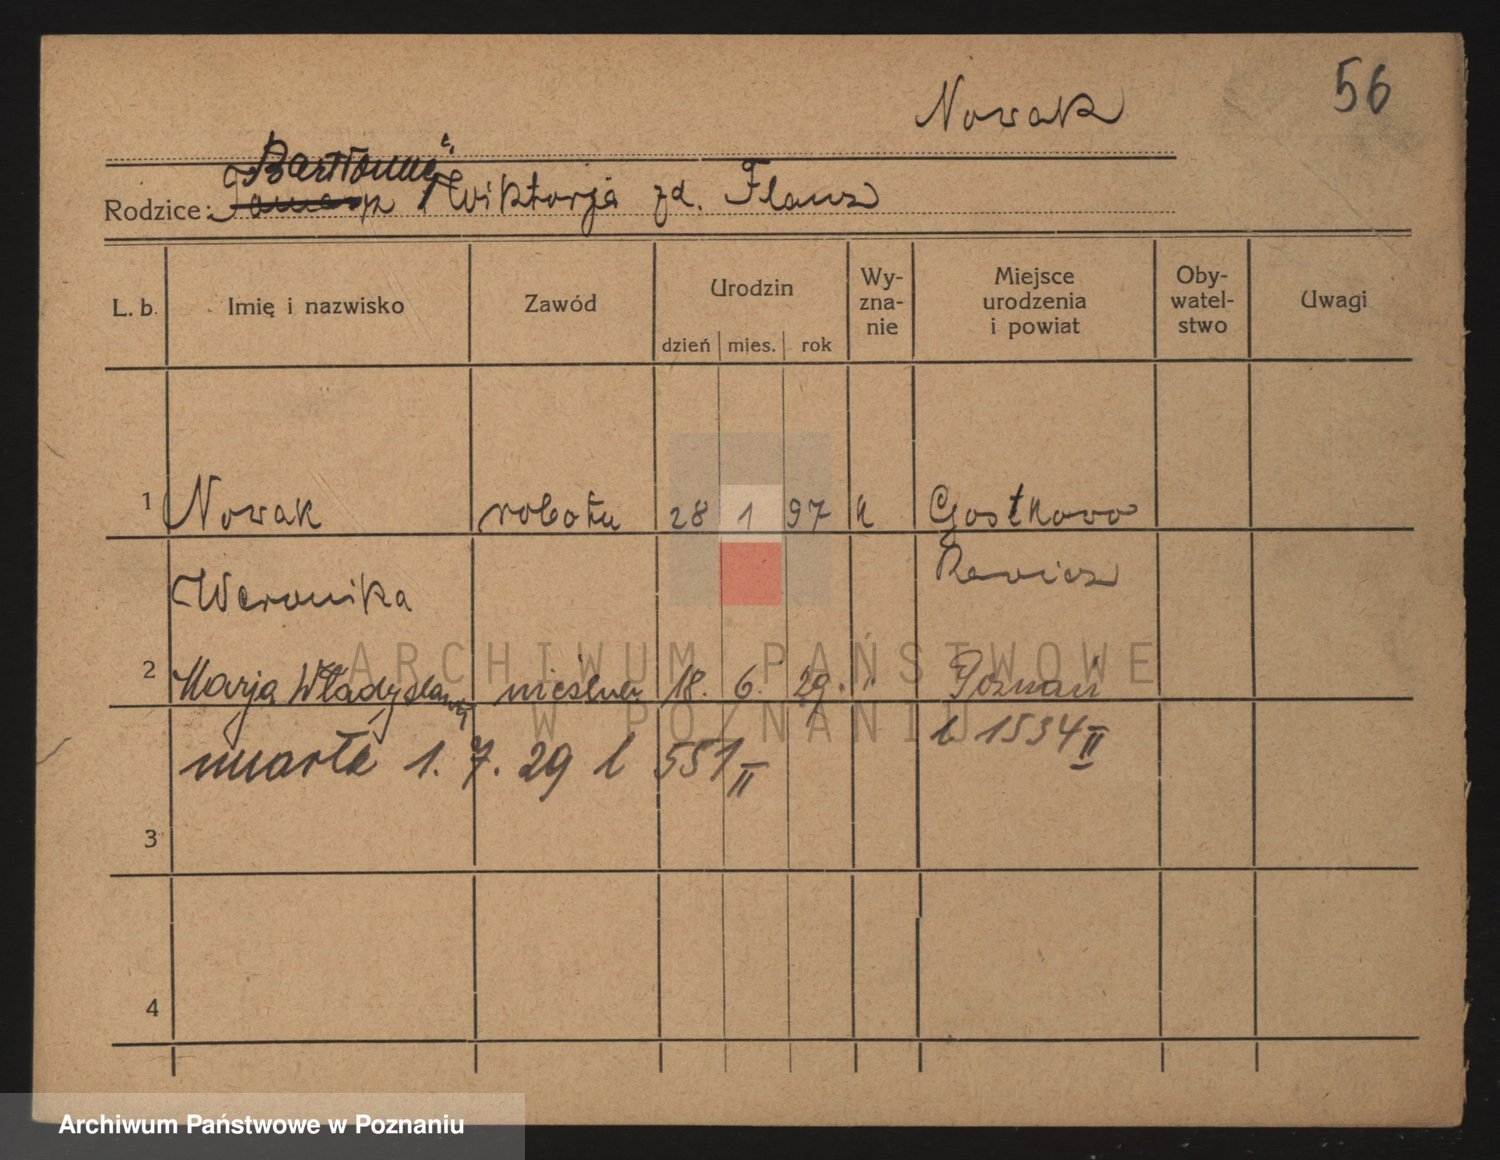 56
Nowak
Bartłomiej
Rodzice: Wiktorja zd. Flanz
L. b. Imię i nazwisko Zawód Urodzin dzień mies. rok Wy-zna-nie Miejsce urodzenia i powiat Oby-watel-stwo Uwagi
1 Nowak robotn 28 1 97 k Gostkowo
Weronika Rawicz
2 Marja Władysława nieślub 18. 6. 29. " Poznań
l 1534 II
umarła 1. 7. 29 l 551 II
3
4
ARCHIWUM PAŃSTWOWE
W POZNANIU
Archiwum Państwowe w Poznaniu